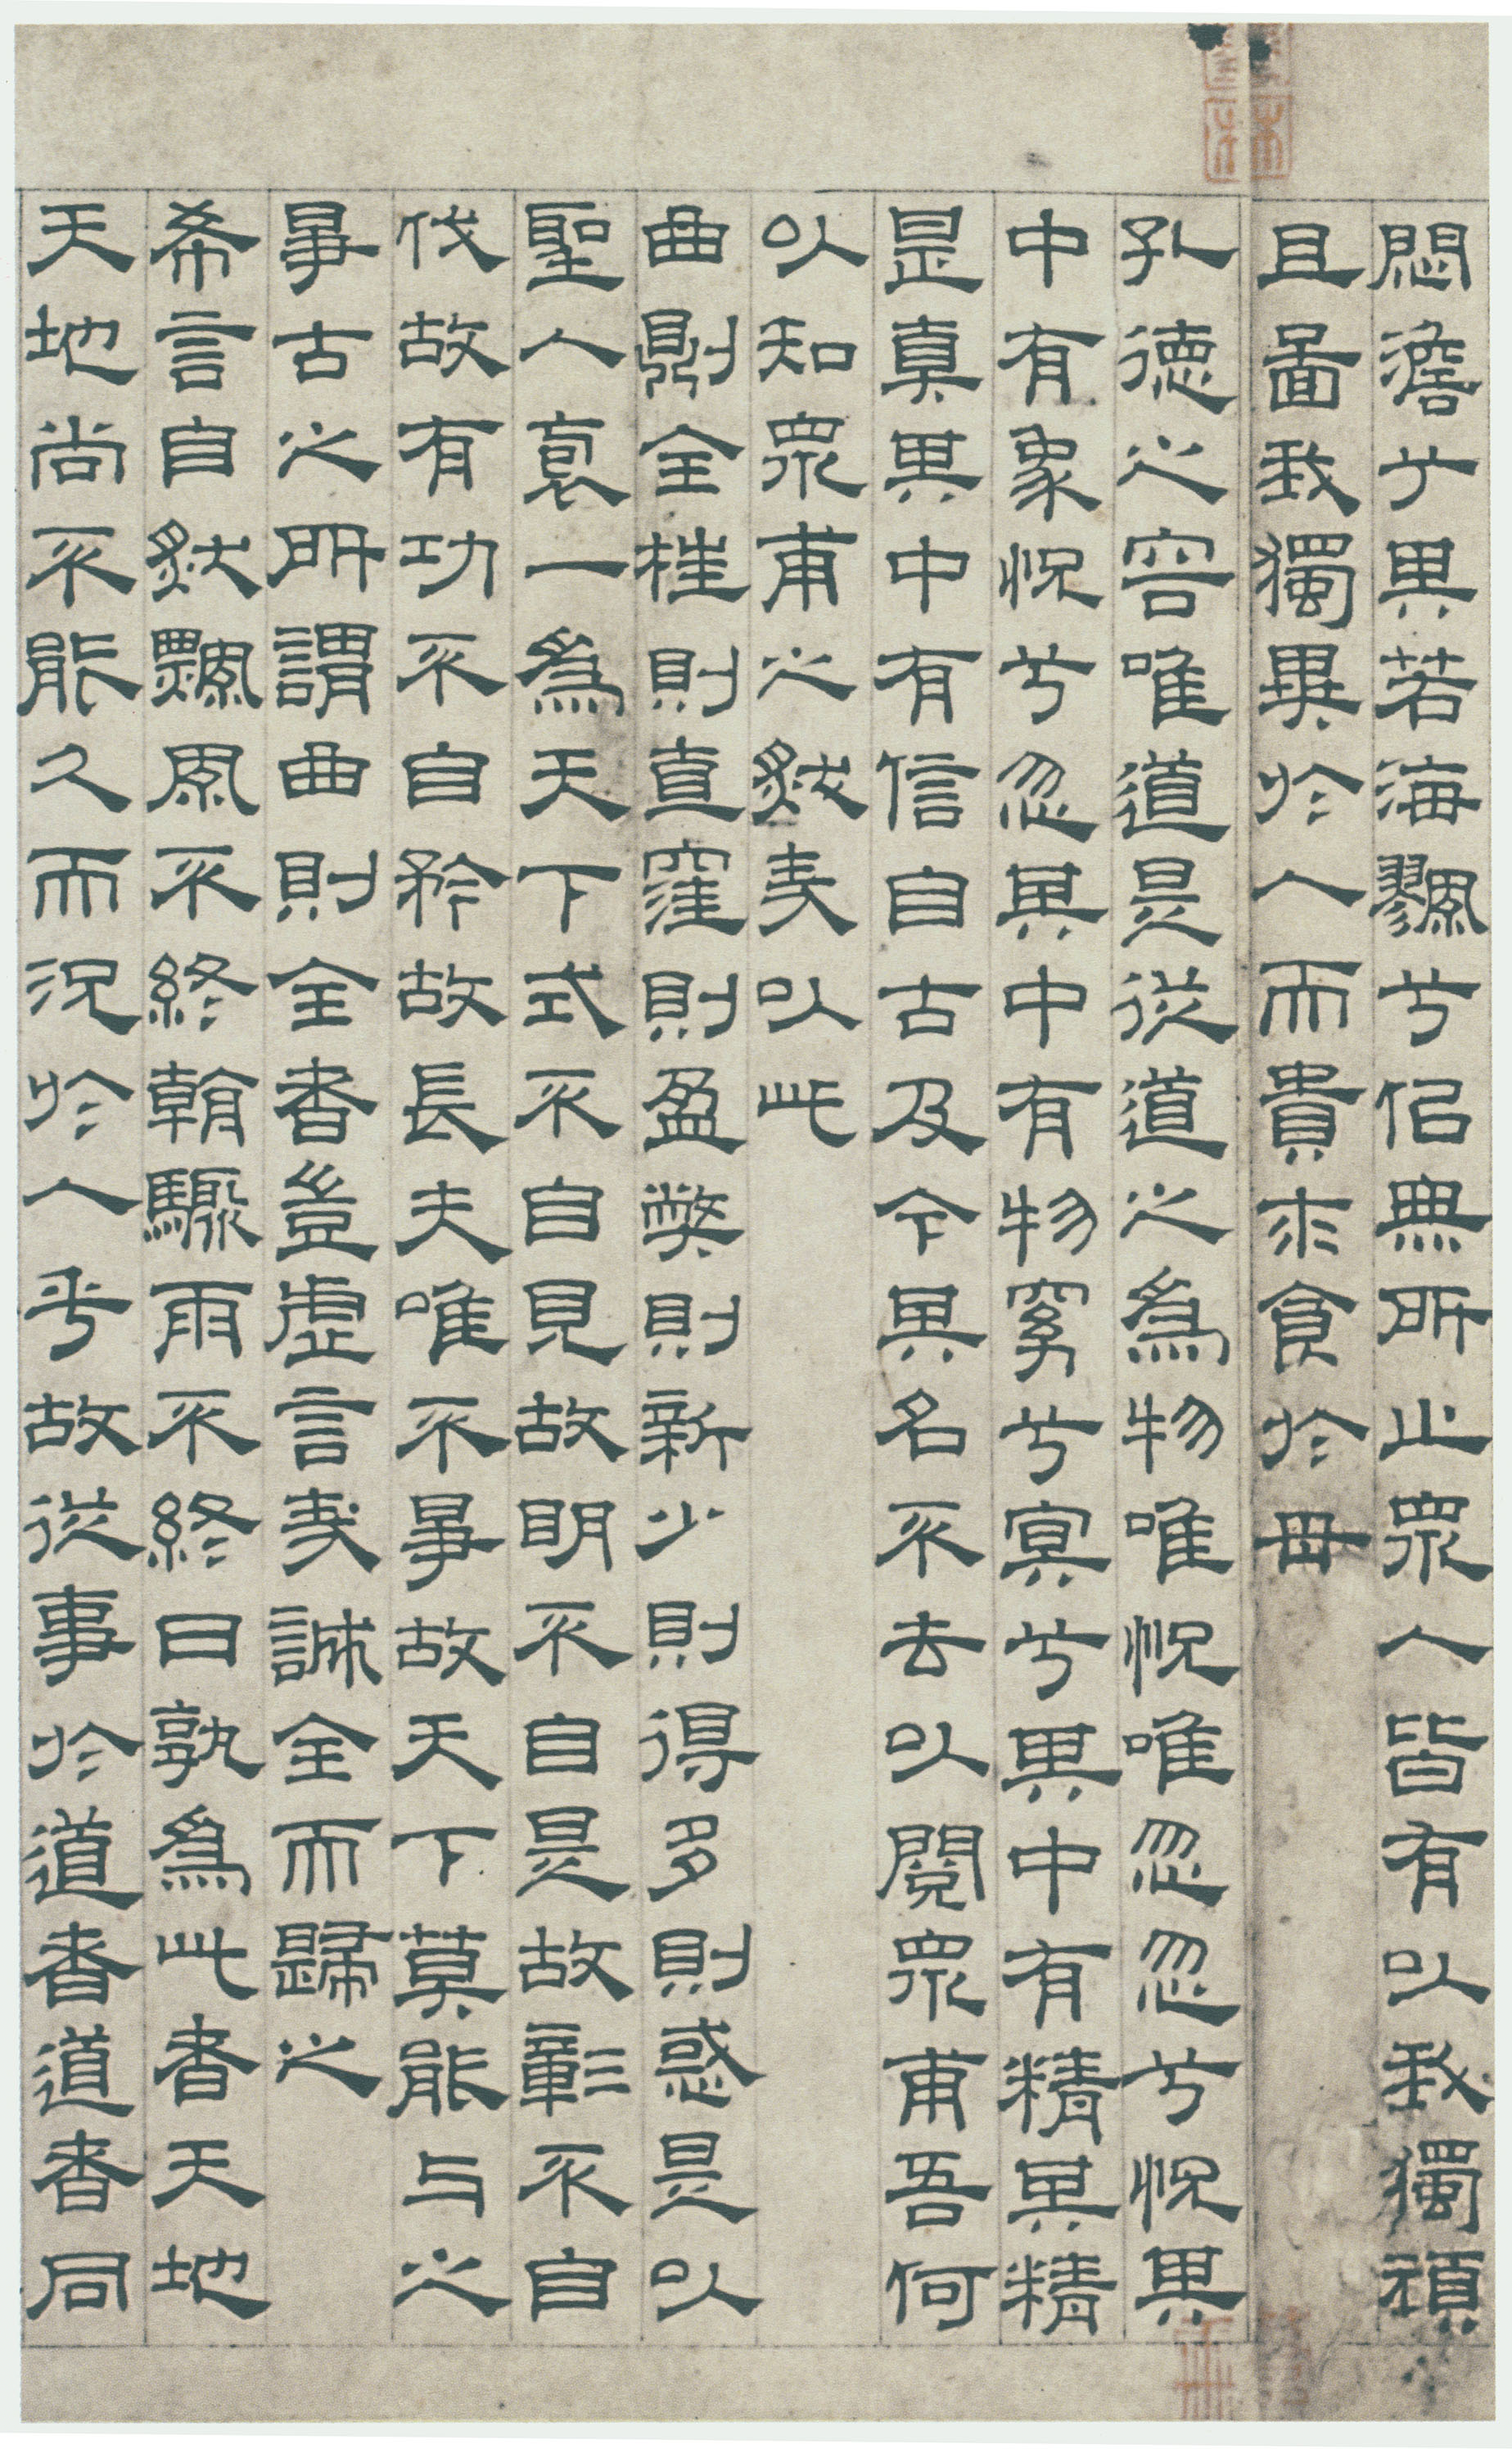 悶澹兮其若海飂兮侣無所止眾人皆有以我獨頑
且啚我獨異於人而貴求食於母
孔德之容唯道是從道之為物唯怳唯忽忽兮怳其
中有象怳兮忽其中有物窈兮冥兮其中有精其精
甚真其中有信自古及今其名不去以閱眾甫吾何
以知眾甫之然哉以此
曲則全枉則直窪則盈弊則新少則得多則惑是以
聖人裒一為天下式不自見故明不自是故彰不自
伐故有功不自矜故長夫唯不爭故天下莫能与之
爭古之所謂曲則全者豈虛言哉誠全而歸之
希言自然飄風不終朝驟雨不終日孰為此者天地
天地尚不能久而況於人乎故從事於道者道者同